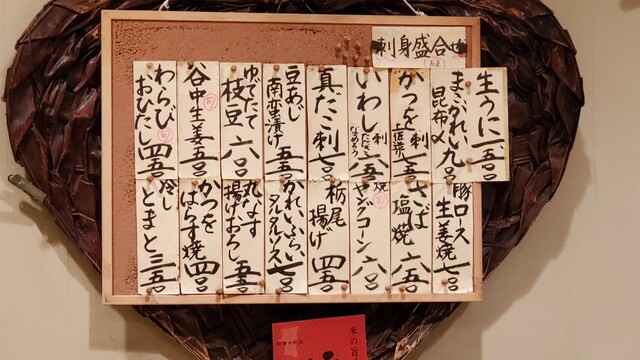 刺身盛合せ
生うに 一、五〇〇
まこがれい 昆布〆 九〇〇
かつを 刺 土佐造り
いわし 刺 たたき なめろう 六五〇
真だこ刺 七〇〇
豆あじ 南蛮漬け 五五〇
ゆたて 枝豆 六〇〇
谷中生姜 五五〇
わらび おひたし 四五〇
豚ロース 生姜焼 七〇〇
さば 塩焼 六五〇
焼 ヤングコーン 六〇〇
栃尾 揚げ 四五〇
かれいふらい タルタルソース 七〇〇
丸なす 揚げおろし 五五〇
かつを はらす焼 四〇〇
冷し とまと 三五〇
米の旨